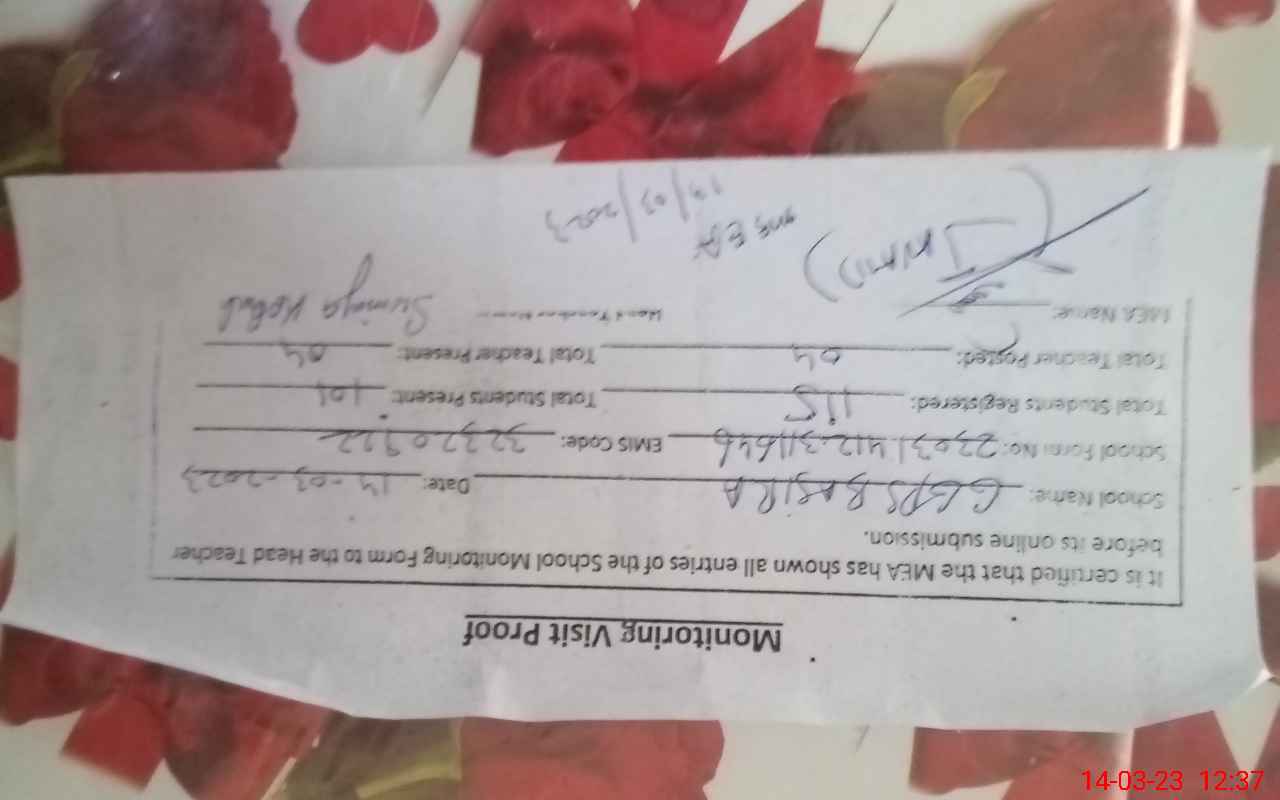 Monitoring Visit Proof
It is certified that the MEA has shown all entries of the School Monitoring Form to the Head Teacher
before its online submission.
School Name: GGPS BASIRA Date: 14-03-2023
School Form No: EMIS Code: 32320922
Total Students Registered: 115 Total Students Present: 101
Total Teacher Posted: 04 Total Teacher Present: 04
MEA Name: Head Teacher Name Sumiya
14/03/2023
14-03-23 12:37